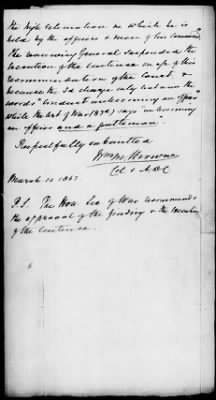 the high estimation in which he is
held by the officers & men of his command
the reviewing General suspended the
execution of the sentence on of this
recommendation of the Court, &
because the 3d charge only that uses the
words "conduct unbecoming an officer"
while the Art of War (83d) says "unbecoming
an officer and a gentleman".
Respectfully submitted
Col & ADC
March 10 1863.
P.S. The Hon. Sec of War recommends
the approval of the finding & the execution
of the sentence.